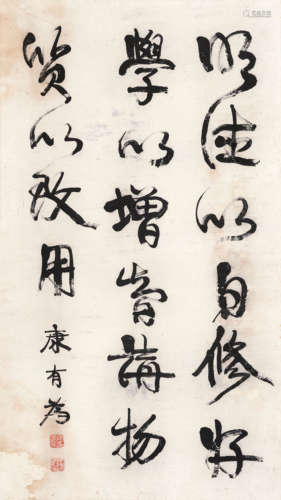 明德以自修好
學以增智講物
質以致用
康有為